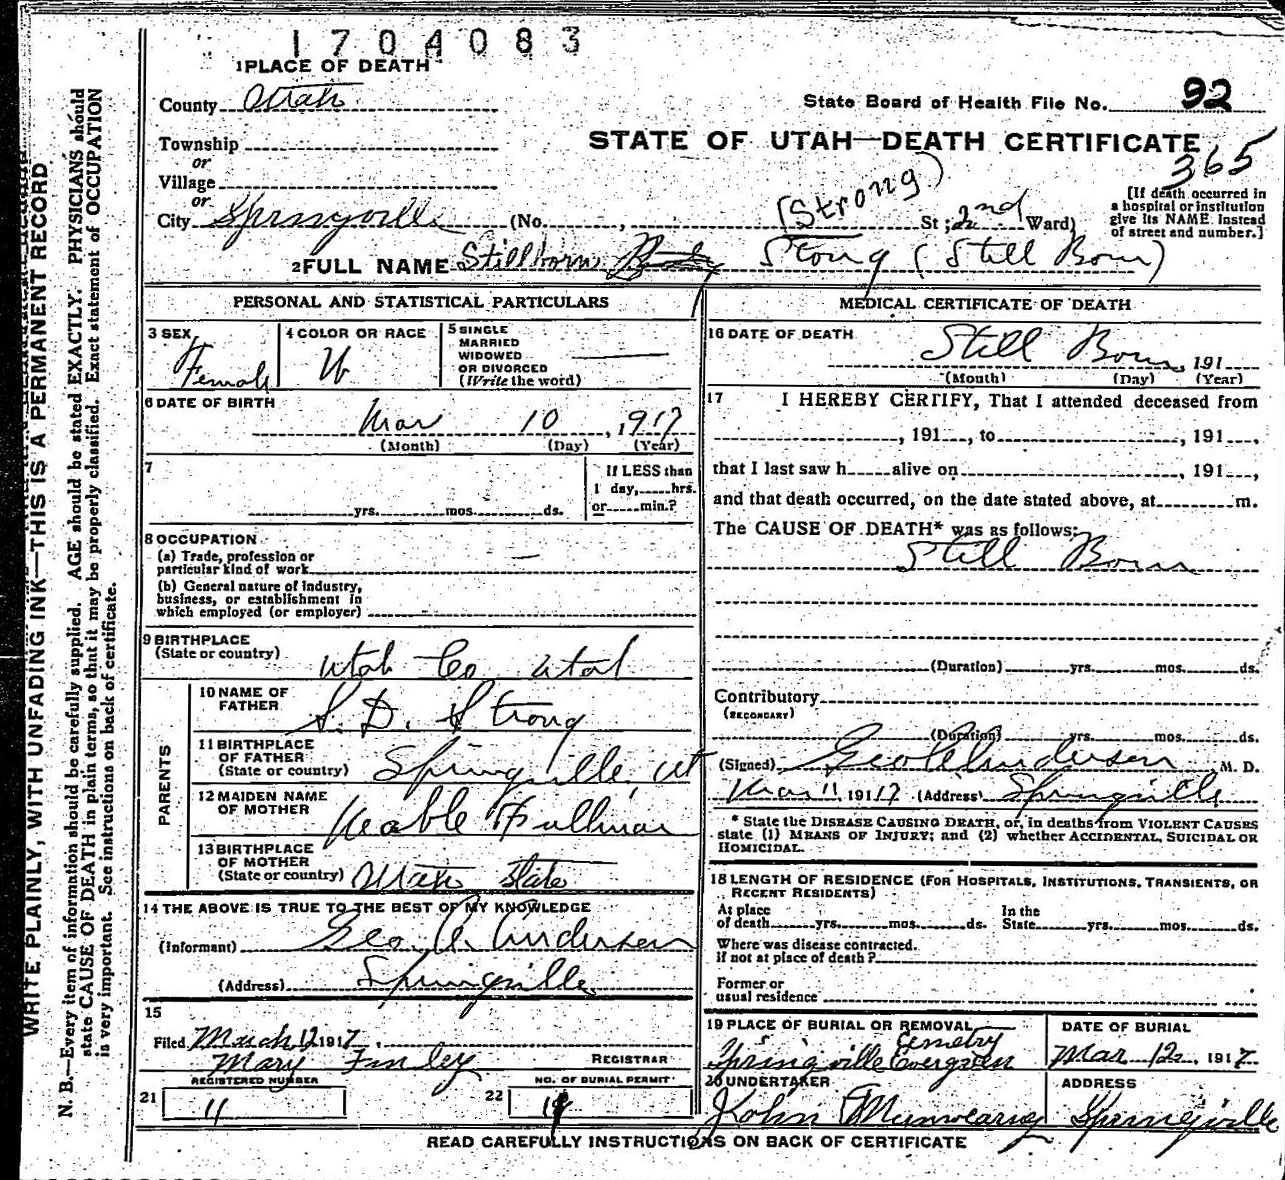 1704083
1 PLACE OF DEATH
County Utah
State Board of Health File No. 92
Township
or
Village
or
STATE OF UTAH—DEATH CERTIFICATE
365
[If death occurred in a hospital or institution give its NAME instead of street and number.]
City Springville (No. , St; 2nd Ward)
(Strong)
2 FULL NAME Stillborn Stong (Still Born)
PERSONAL AND STATISTICAL PARTICULARS
3 SEX
Female
4 COLOR OR RACE
W
5 SINGLE
MARRIED
WIDOWED
OR DIVORCED
(Write the word)
6 DATE OF BIRTH
Mar 10, 1917
(Month) (Day) (Year)
7
yrs. mos. ds.
If LESS than
1 day, hrs.
or min.?
8 OCCUPATION
(a) Trade, profession or
particular kind of work —
(b) General nature of industry,
business, or establishment in
which employed (or employer)
9 BIRTHPLACE
(State or country)
Utah Co Utah
PARENTS
10 NAME OF
FATHER
S. D. Strong
11 BIRTHPLACE
OF FATHER
(State or country) Springville, Ut
12 MAIDEN NAME
OF MOTHER
Fullmer
13 BIRTHPLACE
OF MOTHER
(State or country) Utah State
14 THE ABOVE IS TRUE TO THE BEST OF MY KNOWLEDGE
(Informant) Geo. A. Anderson
(Address) Springville
15
Filed March 12 1917,
Mary Finley REGISTRAR
REGISTERED NUMBER
21 11
NO. OF BURIAL PERMIT
22
MEDICAL CERTIFICATE OF DEATH
16 DATE OF DEATH
Still Born, 191
(Month) (Day) (Year)
17 I HEREBY CERTIFY, That I attended deceased from
, 191 , to , 191 ,
that I last saw h alive on , 191 ,
and that death occurred, on the date stated above, at m.
The CAUSE OF DEATH* was as follows:
Still Born
(Duration) yrs. mos. ds.
Contributory
(SECONDARY)
(Duration) yrs. mos. ds.
(Signed) Geo A Anderson M. D.
Mar 11 19117 (Address) Springville
* State the DISEASE CAUSING DEATH, or, in deaths from VIOLENT CAUSES
state (1) MEANS OF INJURY; and (2) whether ACCIDENTAL, SUICIDAL OR
HOMICIDAL.
18 LENGTH OF RESIDENCE (FOR HOSPITALS, INSTITUTIONS, TRANSIENTS, OR
RECENT RESIDENTS)
At place
of death yrs. mos. ds.
In the
State yrs. mos. ds.
Where was disease contracted.
if not at place of death?
Former or
usual residence
19 PLACE OF BURIAL OR REMOVAL
Springville Evergreen Cemetry
DATE OF BURIAL
Mar 12 1917
20 UNDERTAKER
John
ADDRESS
Springville
READ CAREFULLY INSTRUCTIONS ON BACK OF CERTIFICATE
WRITE PLAINLY, WITH UNFADING INK—THIS IS A PERMANENT RECORD
N. B.—Every item of information should be carefully supplied. AGE should be stated EXACTLY. PHYSICIANS should
state CAUSE OF DEATH in plain terms, so that it may be properly classified. Exact statement of OCCUPATION
is very important. See instructions on back of certificate.